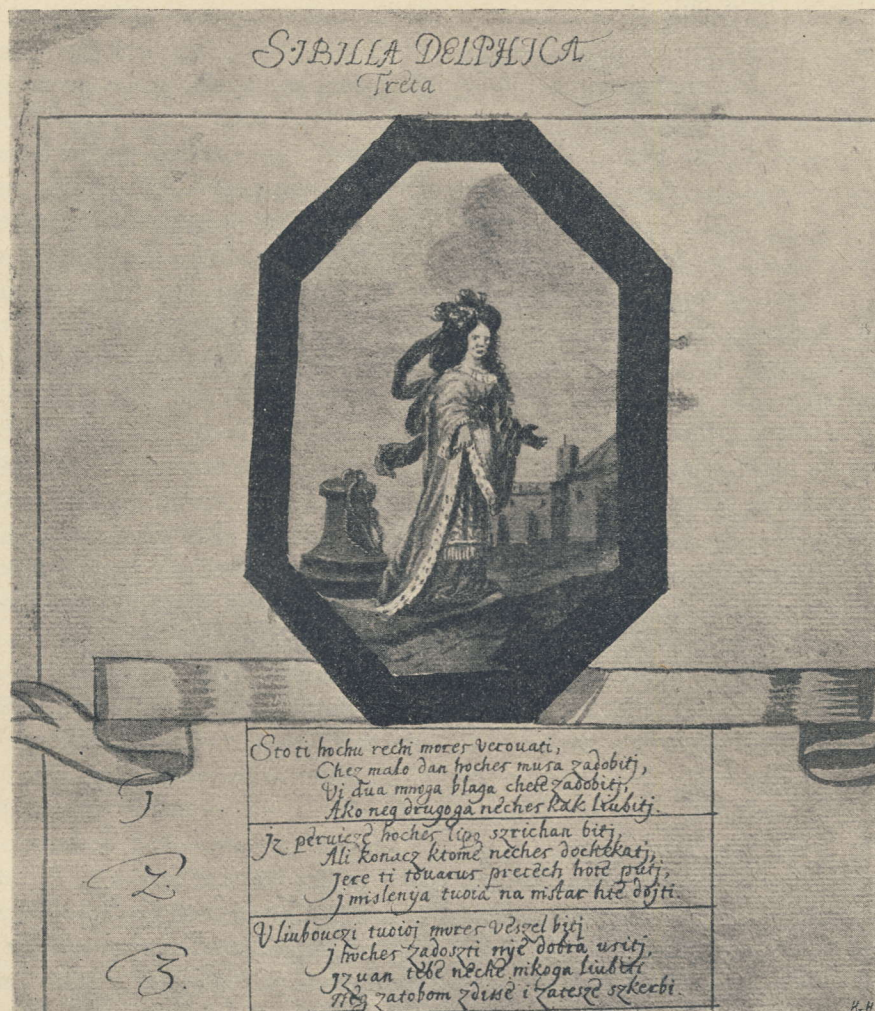 SIBILLA DELPHICA
Treta
1
Sto ti hochu rechi mores verouati,
Chez malo dan hoches musa zadobitj,
Vi dua mnoga blaga chete zadobitj,
Ako neg drugoga neches kak liubitj.
2.
Jz peruicze hoches lipo szrichan bitj,
Ali konacz ktome neches dochekatj,
Jere ti touarus precech hote putj,
j mislenija tuoia na nistar hte dojti.
3.
V liubouczi tuoioj mores veszel bitj
J hoches zadoszti nye dobra usitj,
Jzuan tebe neche nikoga liubiti
Neg zatobom zdisse i zatesze szkerbi.